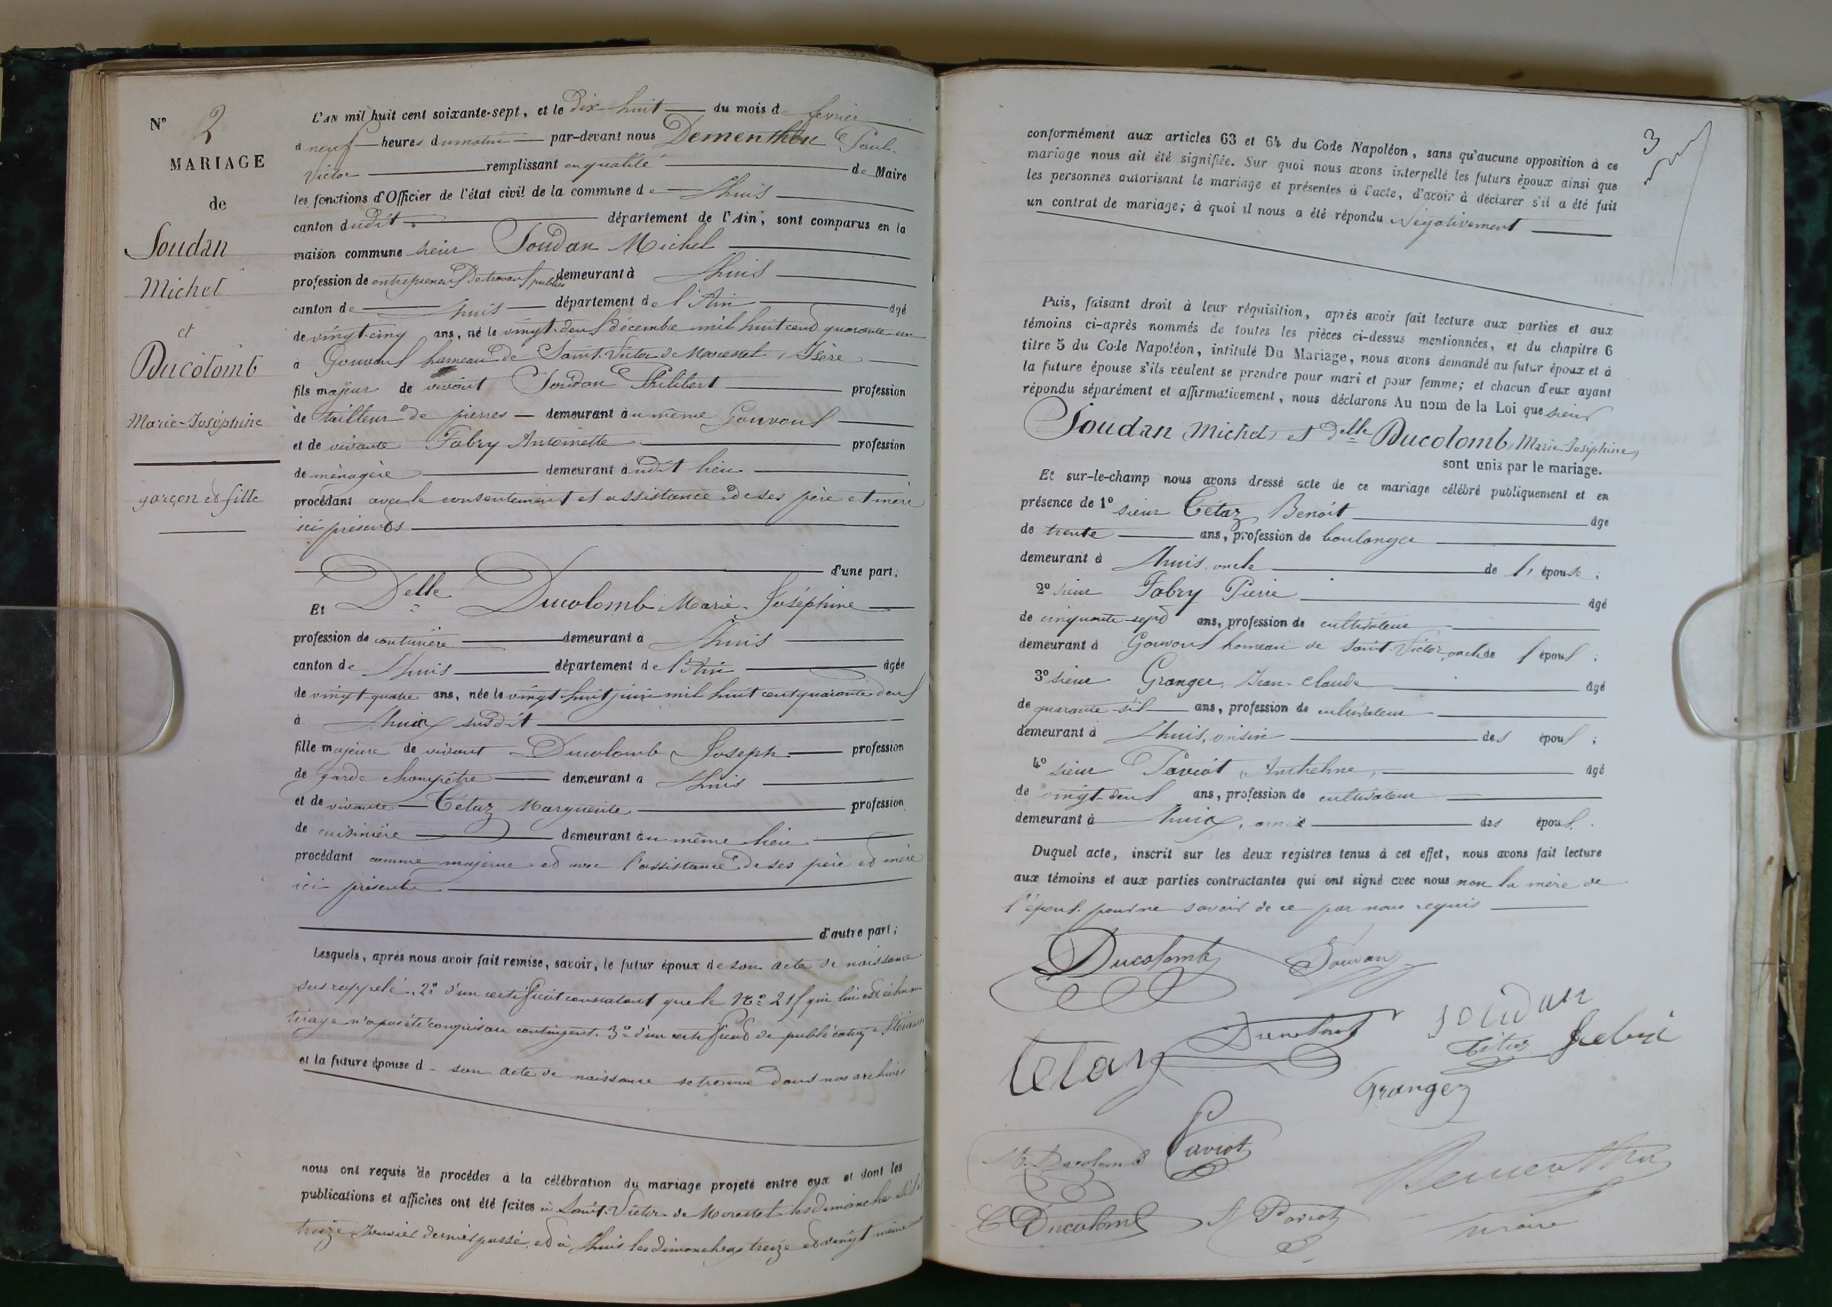 N° 2
MARIAGE
de
Soudan
Michel
et
Ducolomb
Marie-Joséphine
garçon et fille
L'AN mil huit cent soixante-sept, et le dix-huit du mois de février
à neuf heures du matin par-devant nous Dementhon Paul-
Victor remplissant en qualité de Maire
les fonctions d'Officier de l'état civil de la commune de Lhuis
canton dudit département de l'Ain, sont comparus en la
maison commune sieur Soudan Michel
profession de entrepreneur de travaux publics demeurant à Lhuis
canton de Lhuis département de l'Ain âgé
de vingt-cinq ans, né le vingt-deux décembre mil huit cent quarante-un
à Gouvoux hameau de Saint-Victor de Morestel, Isère
fils majeur de vivant Soudan Philibert profession
de tailleur de pierres demeurant au même Gouvoux
et de vivante Fabry Antoinette profession
de ménagère demeurant à udit lieu
procédant avec le consentement et assistance de ses père et mère
ici présents
d'une part;
Et Delle Ducolomb Marie-Joséphine
profession de couturière demeurant à Lhuis
canton de Lhuis département de l'Ain âgée
de vingt-quatre ans, née le vingt-huit juin mil huit cent quarante-deux
à Lhuis susdit
fille majeure de vivant Ducolomb Joseph profession
de garde champêtre demeurant à Lhuis
et de vivante Cétaz Marguerite profession
de cuisinière demeurant au même lieu
procédant comme majeure et avec l'assistance de ses père et mère
ici présents
d'autre part;
Lesquels, après nous avoir fait remise, savoir, le futur époux de son acte de naissance
sus rappelé. 2° d'un certificat constatant que le N° 21 qui lui est échu au
tirage n'a pas été compris au contingent. 3° d'un certificat de publication
et la future épouse d son acte de naissance se trouve dans nos archives
nous ont requis de procéder à la célébration du mariage projeté entre eux et dont les
publications et affiches ont été faites à Saint-Victor de Morestel les dimanches
treize janvier dernier passé, et à Lhuis les dimanches treize et vingt même
3
conformément aux articles 63 et 64 du Code Napoléon, sans qu'aucune opposition à ce
mariage nous ait été signifiée. Sur quoi nous avons interpellé les futurs époux ainsi que
les personnes autorisant le mariage et présentes à l'acte, d'avoir à déclarer s'il a été fait
un contrat de mariage; à quoi il nous a été répondu Négativement
Puis, faisant droit à leur réquisition, après avoir fait lecture aux parties et aux
témoins ci-après nommés de toutes les pièces ci-dessus mentionnées, et du chapitre 6
titre 5 du Code Napoléon, intitulé Du Mariage, nous avons demandé au futur époux et à
la future épouse s'ils veulent se prendre pour mari et pour femme; et chacun d'eux ayant
répondu séparément et affirmativement, nous déclarons Au nom de la Loi que sieur
Soudan (Michel) et delle Ducolomb (Marie-Joséphine)
sont unis par le mariage.
Et sur-le-champ nous avons dressé acte de ce mariage célébré publiquement et en
présence de 1° sieur Cétaz Benoit âgé
de trente ans, profession de boulanger
demeurant à Lhuis, oncle de l' épouse.
2° sieur Fabry Pierre âgé
de cinquante-sept ans, profession de cultivateur
demeurant à Gouvoux hameau de Saint-Victor, oncle de l'époux.
3° sieur Granger, Jean-Claude âgé
de quarante-six ans, profession de cultivateur
demeurant à Lhuis, cousin des époux;
4° sieur Paviot (Anthelme) âgé
de vingt-deux ans, profession de cultivateur
demeurant à Lhuis, ami des époux.
Duquel acte, inscrit sur les deux registres tenus à cet effet, nous avons fait lecture
aux témoins et aux parties contractantes qui ont signé avec nous non la mère de
l'époux pour ne savoir de ce par nous requis
Ducolomb Soudan
Cetaz Ducolomb soudan
Cétaz Fabri
Granger
M. Ducolomb Paviot Dementhon
C. Ducolomb A. Paviot maire